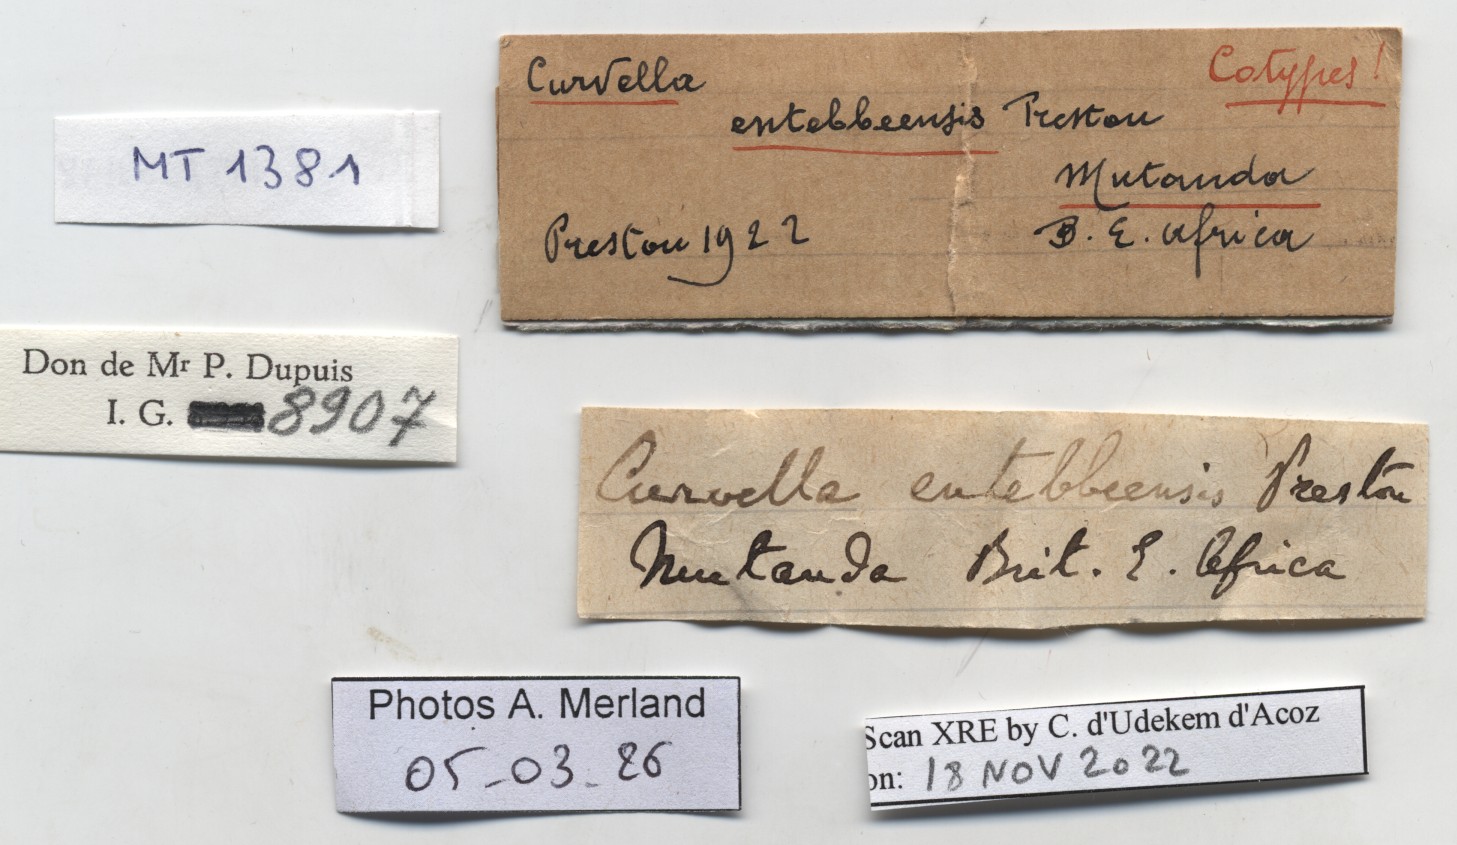 MT 1381
Curvella
Cotypes!
entebbeensis Preston
Mutanda
Preston 1922
B. E. Africa
Don de Mr P. Dupuis
I. G. 8907
Curvella entebbeensis Preston
Mutanda Brit. E. Africa
Photos A. Merland
05-03-26
Scan XRE by C. d'Udekem d'Acoz
on: 18 NOV 2022